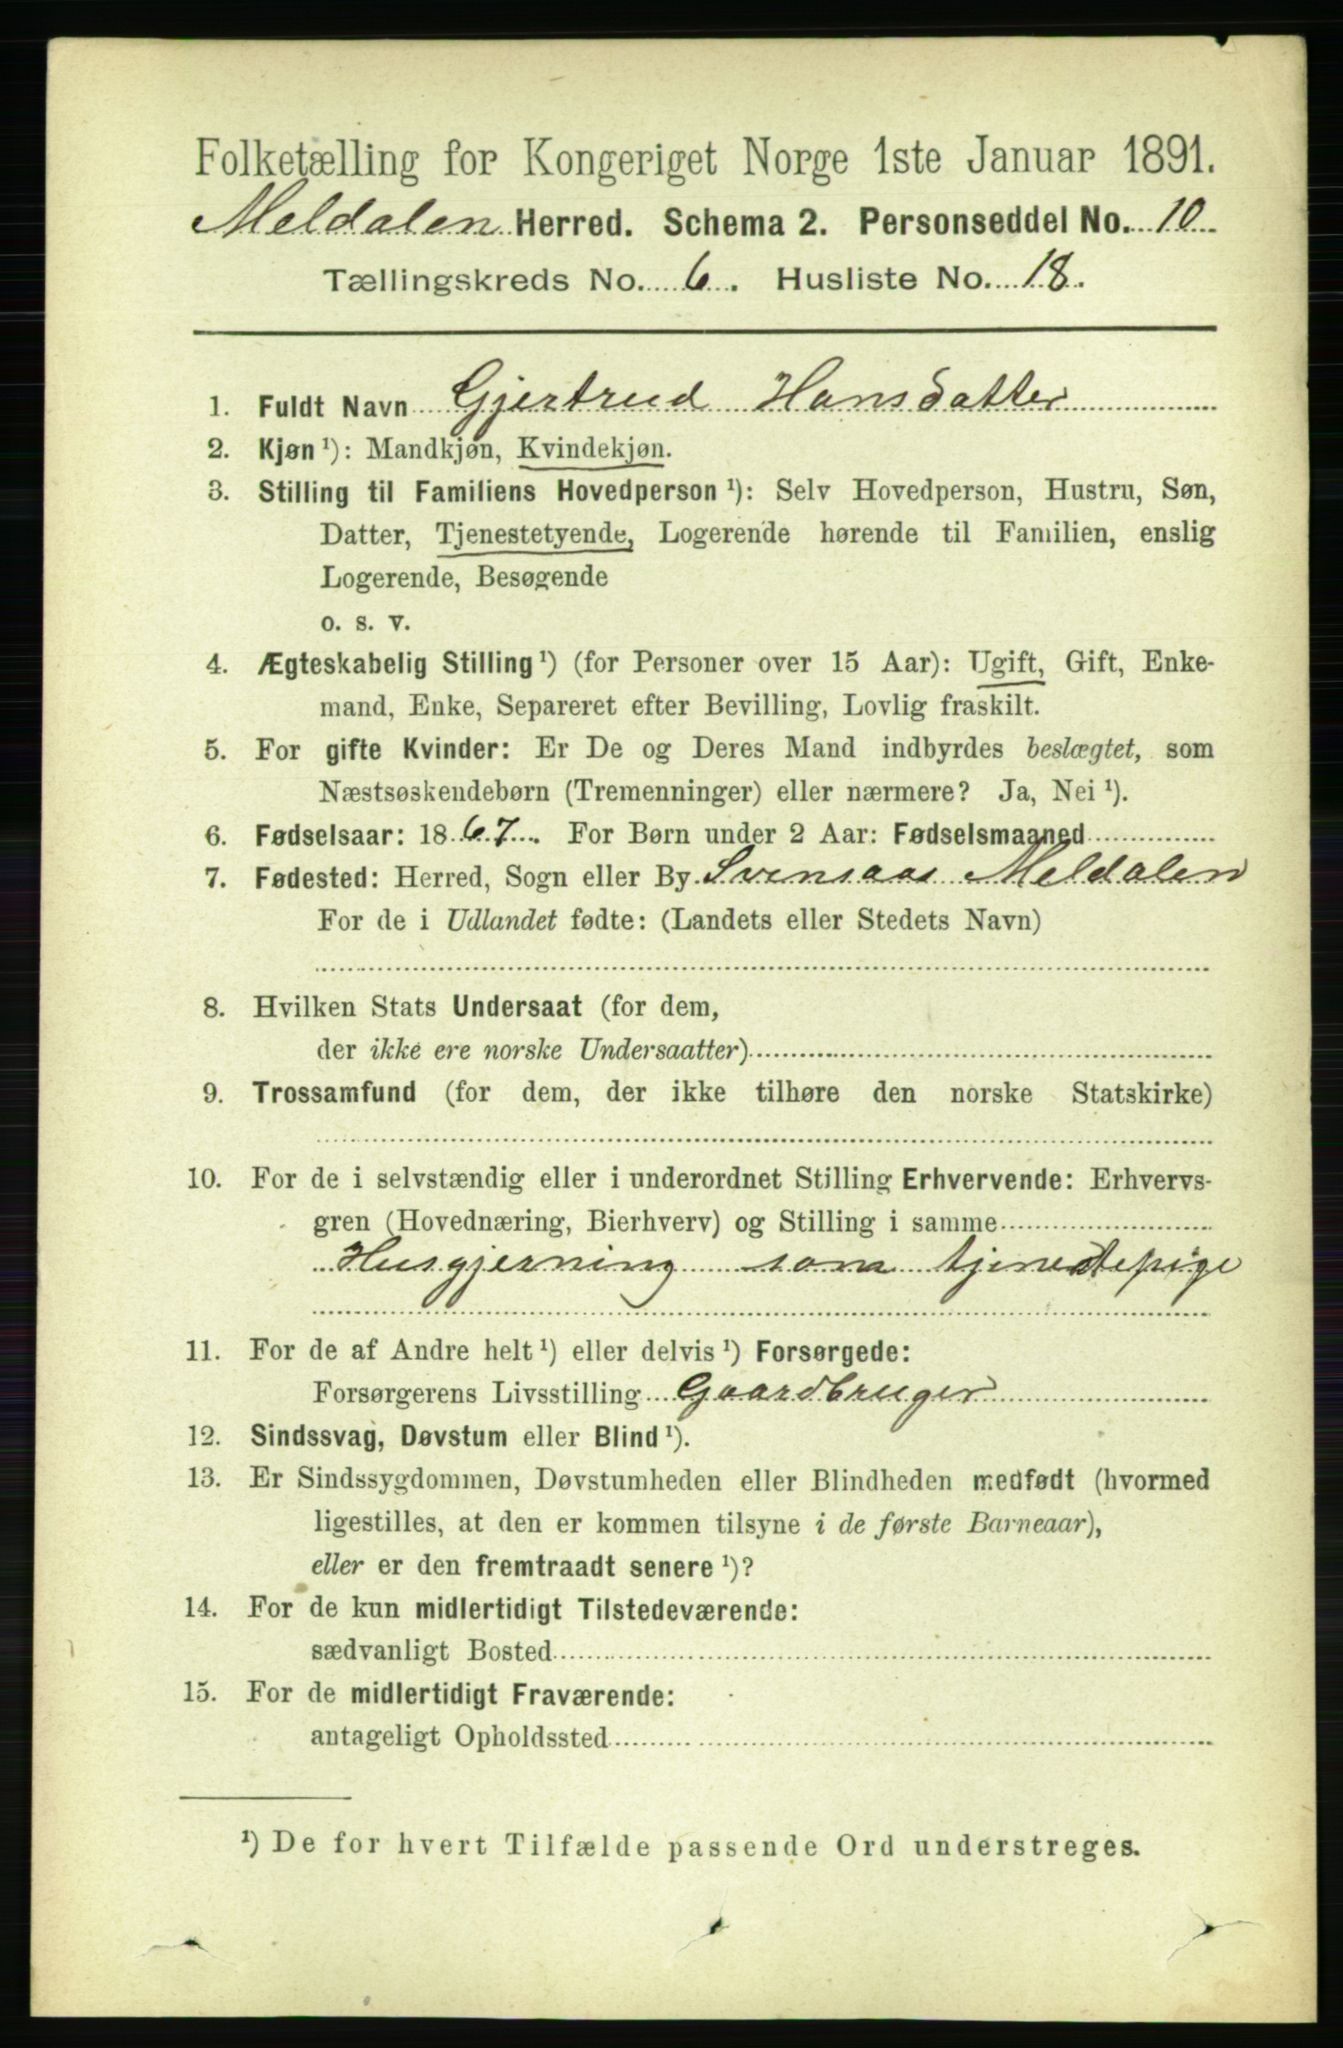 Folketælling for Kongeriget Norge 1ste Januar 1891.
Meldalen Herred. Schema 2. Personseddel No. 10
Tællingskreds No. 6. Husliste No. 18.
1. Fuldt Navn Gjertrud Hansdatter
2. Kjøn ¹): Mandkjøn, Kvindekjøn.
3. Stilling til Familiens Hovedperson ¹): Selv Hovedperson, Hustru, Søn,
Datter, Tjenestetyende, Logerende hørende til Familien, enslig
Logerende, Besøgende
o. s. v.
4. Ægteskabelig Stilling ¹) (for Personer over 15 Aar): Ugift, Gift, Enke-
mand, Enke, Separeret efter Bevilling, Lovlig fraskilt.
5. For gifte Kvinder: Er De og Deres Mand indbyrdes beslægtet, som
Næstsøskendebørn (Tremenninger) eller nærmere? Ja, Nei ¹).
6. Fødselsaar: 1867. For Børn under 2 Aar: Fødselsmaaned
7. Fødested: Herred, Sogn eller By Svensaas Meldalen
For de i Udlandet fødte: (Landets eller Stedets Navn)
8. Hvilken Stats Undersaat (for dem,
der ikke ere norske Undersaatter)
9. Trossamfund (for dem, der ikke tilhøre den norske Statskirke)
10. For de i selvstændig eller i underordnet Stilling Erhvervende: Erhvervs-
gren (Hovednæring, Bierhverv) og Stilling i samme
Husgjerning som tjenestepige
11. For de af Andre helt ¹) eller delvis ¹) Forsørgede:
Forsørgerens Livsstilling Gaardbruger
12. Sindssvag, Døvstum eller Blind ¹).
13. Er Sindssygdommen, Døvstumheden eller Blindheden medfødt (hvormed
ligestilles, at den er kommen tilsyne i de første Barneaar),
eller er den fremtraadt senere ¹)?
14. For de kun midlertidigt Tilstedeværende:
sædvanligt Bosted
15. For de midlertidigt Fraværende:
antageligt Opholdssted
¹) De for hvert Tilfælde passende Ord understreges.